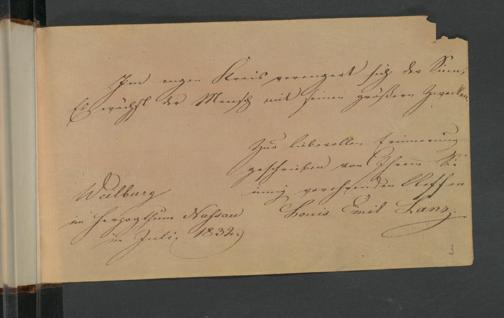 Im engen Kreis verengert sich der Sinn,
Es wächst der Mensch mit seinen größern Zwecken.
Zur liebevollen Erinnerung
geschrieben von Ihrem Sie
innig verehrenden Neffen
Louis Emil Lanz
Walburg
im Herzogthum Nassau
in Juli 1832.
3